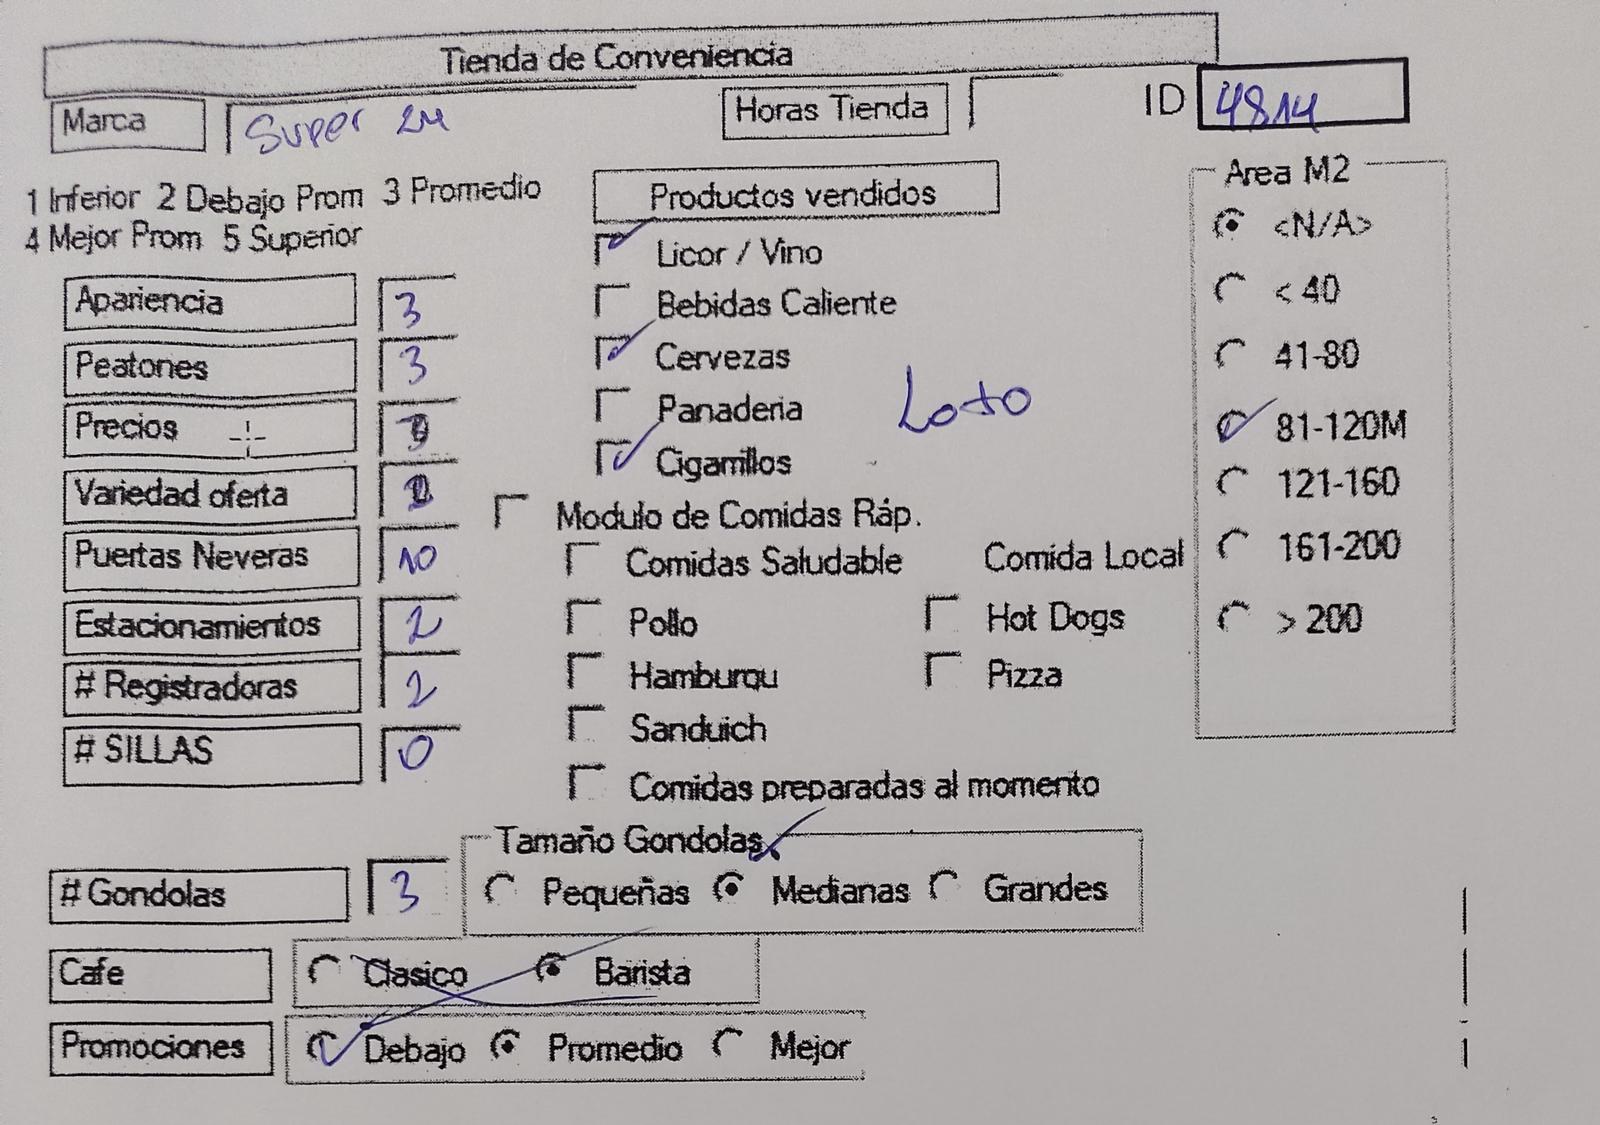 Tienda de Conveniencia
Marca Super 24 Horas Tienda ID 4814
1 Inferior 2 Debajo Prom 3 Promedio
4 Mejor Prom 5 Superior
Productos vendidos
Licor / Vino
Bebidas Caliente
Cervezas
Panaderia
Loto
Cigarrillos
Apariencia 3
Peatones 3
Precios
Variedad oferta
Puertas Neveras 10
Estacionamientos 2
# Registradoras 2
# SILLAS 0
Modulo de Comidas Ráp.
Comidas Saludable Comida Local
Pollo Hot Dogs
Hamburqu Pizza
Sanduich
Comidas preparadas al momento
Area M2
<N/A>
< 40
41-80
81-120M
121-160
161-200
> 200
# Gondolas 3
Tamaño Gondolas
Pequeñas Medianas Grandes
Cafe Clasico Barista
Promociones Debajo Promedio Mejor